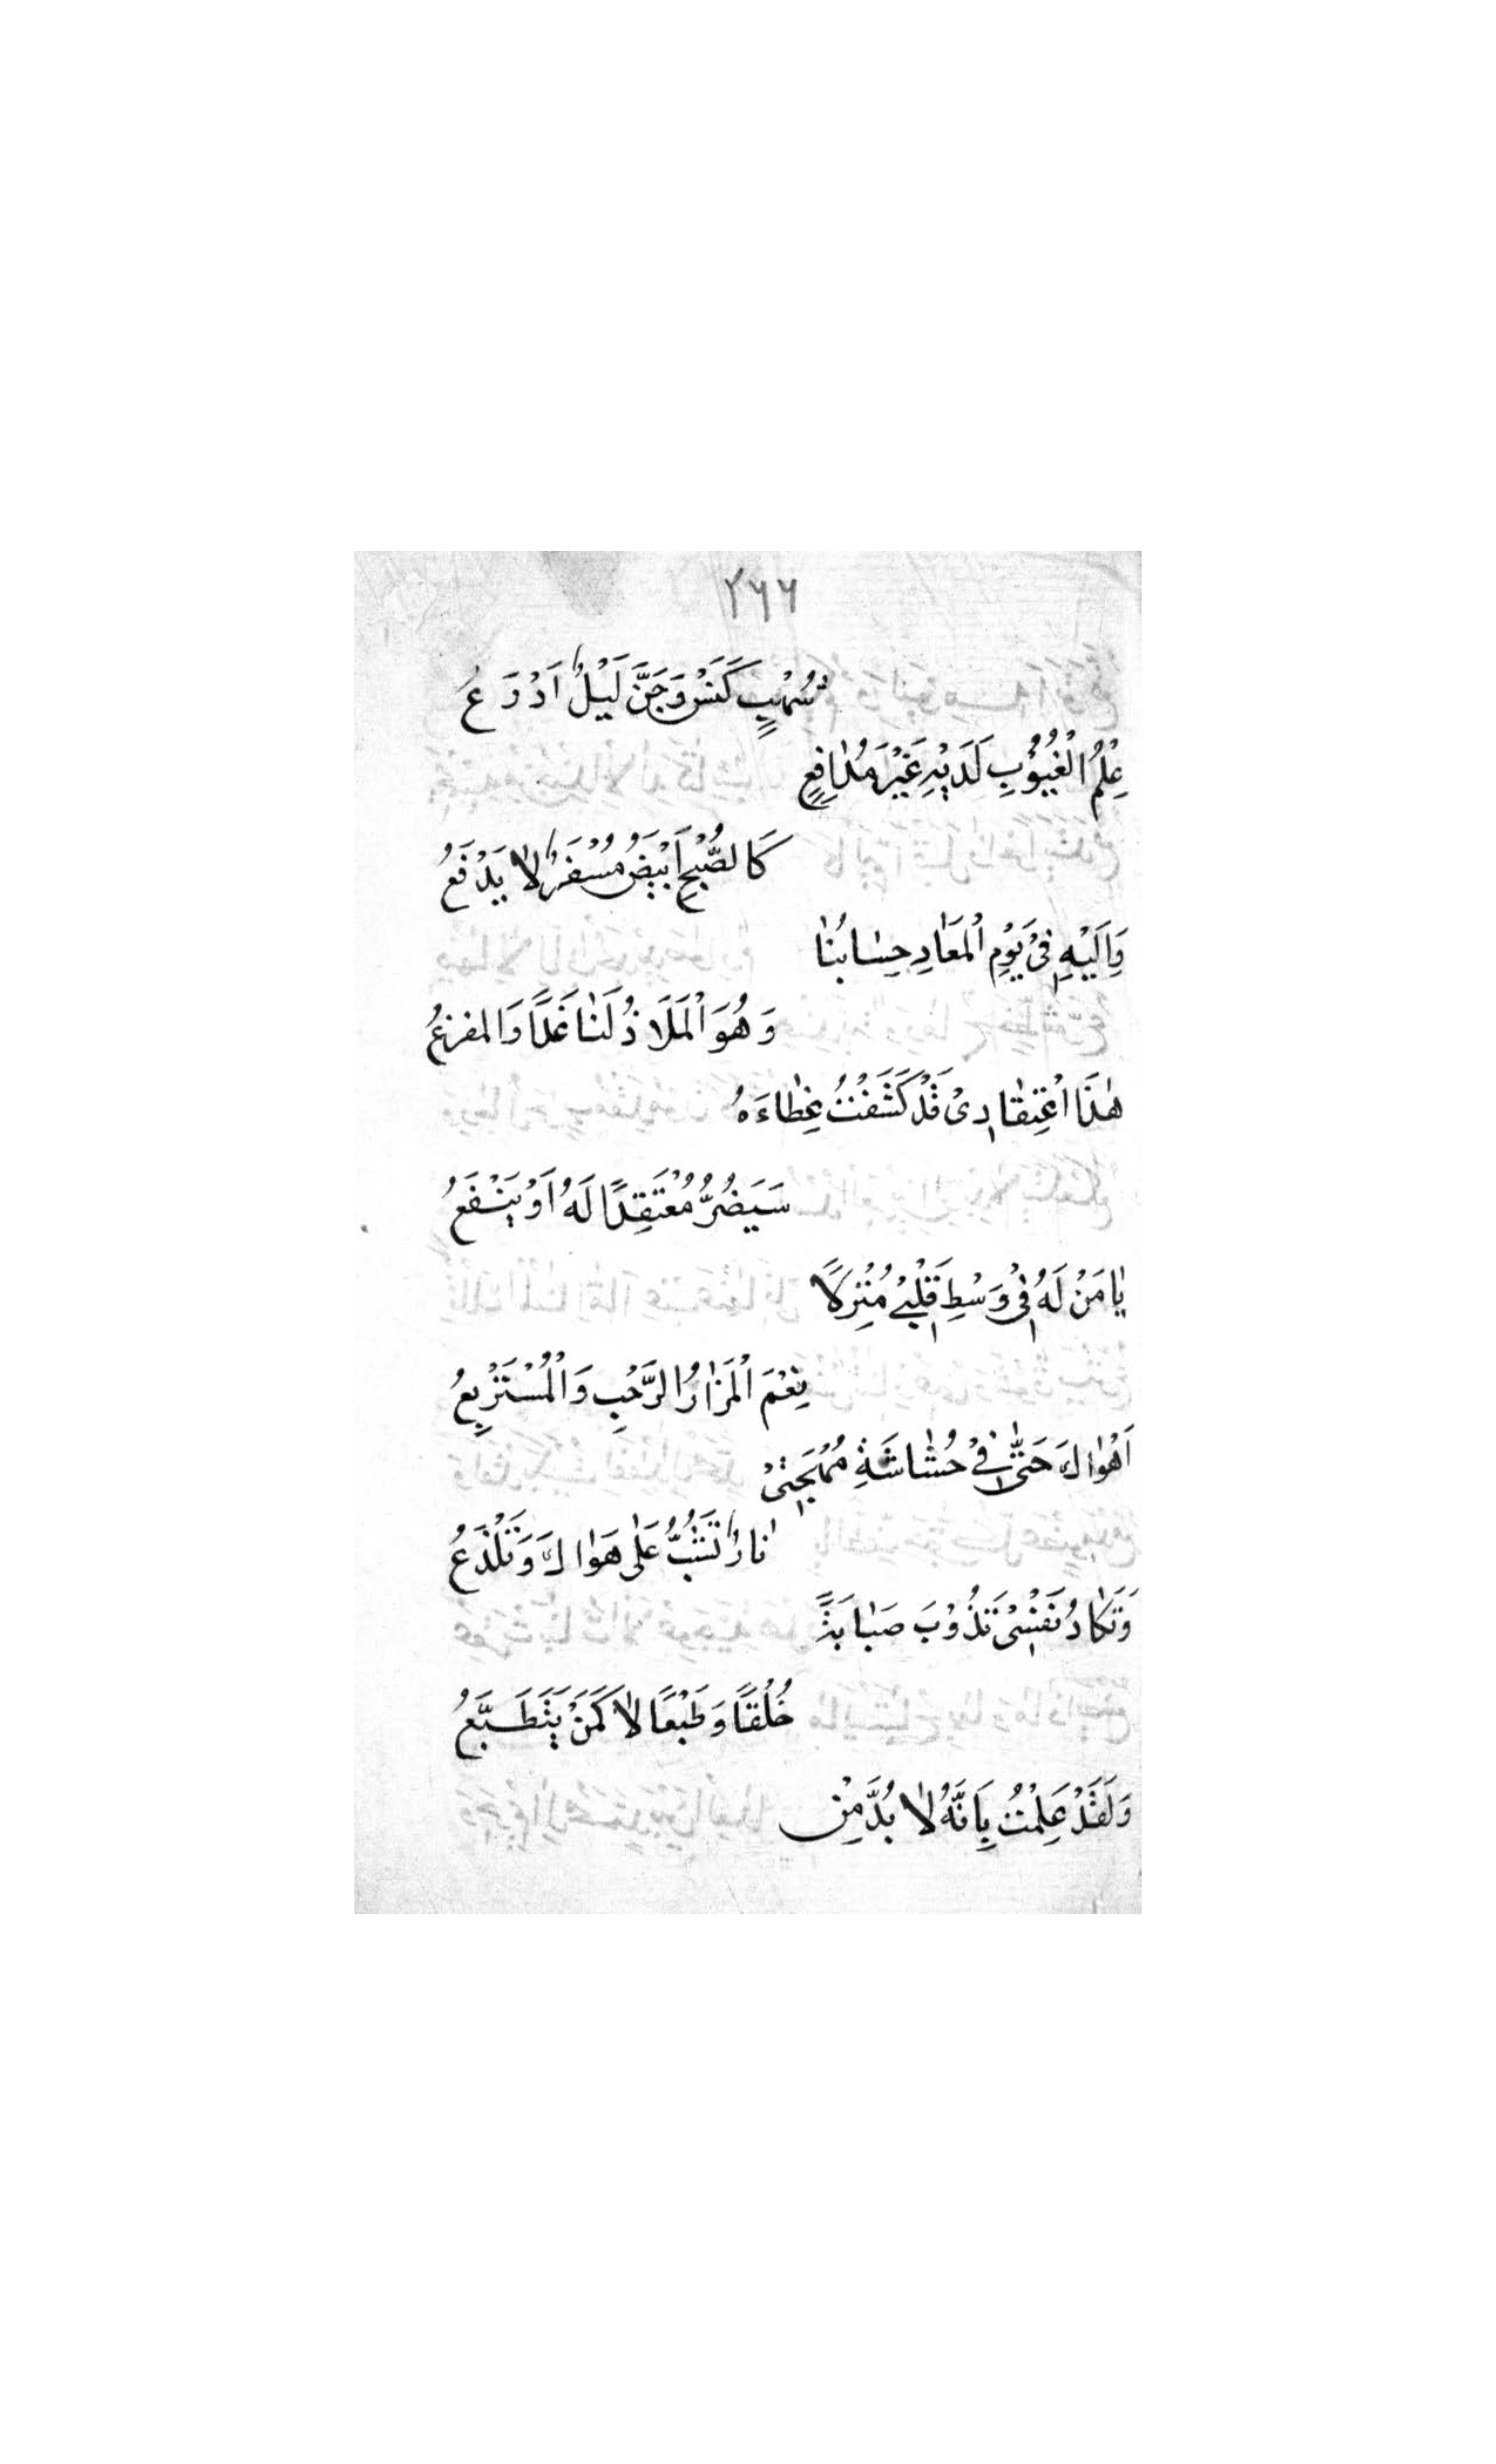 ٢٦٦
شُهْبٍ كَنَسْنَ وَجَنَّ لَيْلٌ اَدْرَعُ
عِلْمُ الْغُيُوْبِ لَدَيْهِ غَيْرَ مُدٰافِعٍ
كَالصُّبْحِ اَبْيَضُ مُسْفَرٌ لاٰ يَدْفَعُ
وَاِلَيْهِ فِىْ يَوْمِ الْمَعٰادِ حِسٰابُنٰا
وَهُوَ الْمَلَاذُ لَنٰا غَدًا وَالمفزعُ
هٰذَا اعْتِقٰادِىْ قَدْ كَشَفْتُ غِطٰاءَهُ
سَيَضُرُّ مُعْتَقِدًا لَهُ اَوْ يَنْفَعُ
يٰا مَنْ لَهُ فِىْ وَسْطِ قَلْبِىْ مُنْزِلًا
نِعْمَ الْمَزٰارُ الرَّحْبِ وَالْمُسْتَرْبِعُ
اَهْوٰاكَ حَتّٰى فِىْ حُشٰاشَةِ مُهْجَتِىْ
نٰارٌ تَشُبُّ عَلٰى هَوٰاكَ وَتَلْذَعُ
وَتَكٰادُ نَفْسِىْ تَذُوْبَ صَبٰابَةً
خُلُقًا وَطَبْعًا لاٰ كَمَنْ يَتَطَبَّعُ
وَلَقَدْ عَلِمْتُ بِاَنَّهُ لاٰ بُدَّ مِنْ